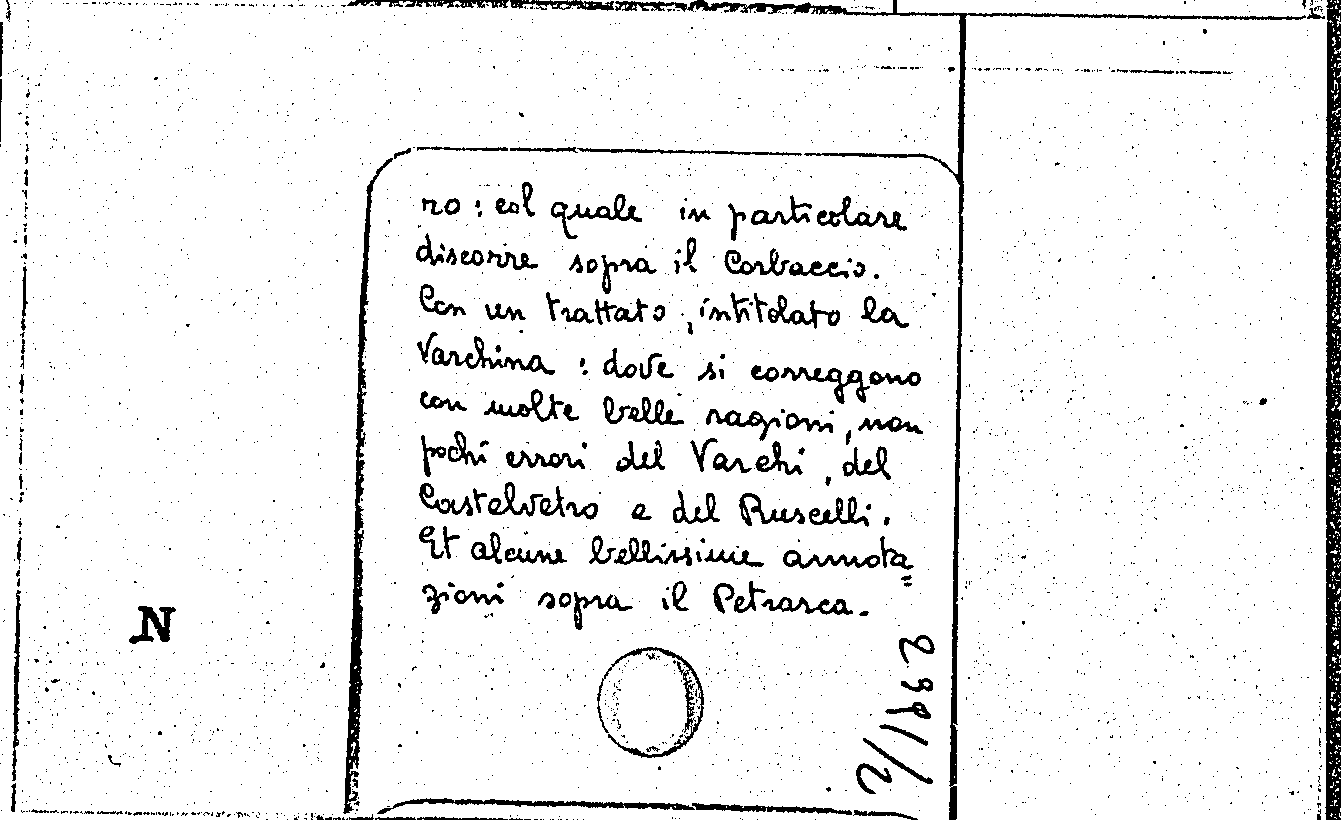 ro : col quale in particolare
discorre sopra il Corbaccio.
Con un trattato, intitolato la
Varchina : dove si correggono
con molte belle ragioni, non
pochi errori del Varchi, del
Castelvetro e del Ruscelli.
Et alcune bellissime annota=
zioni sopra il Petrarca.
N
2991/2